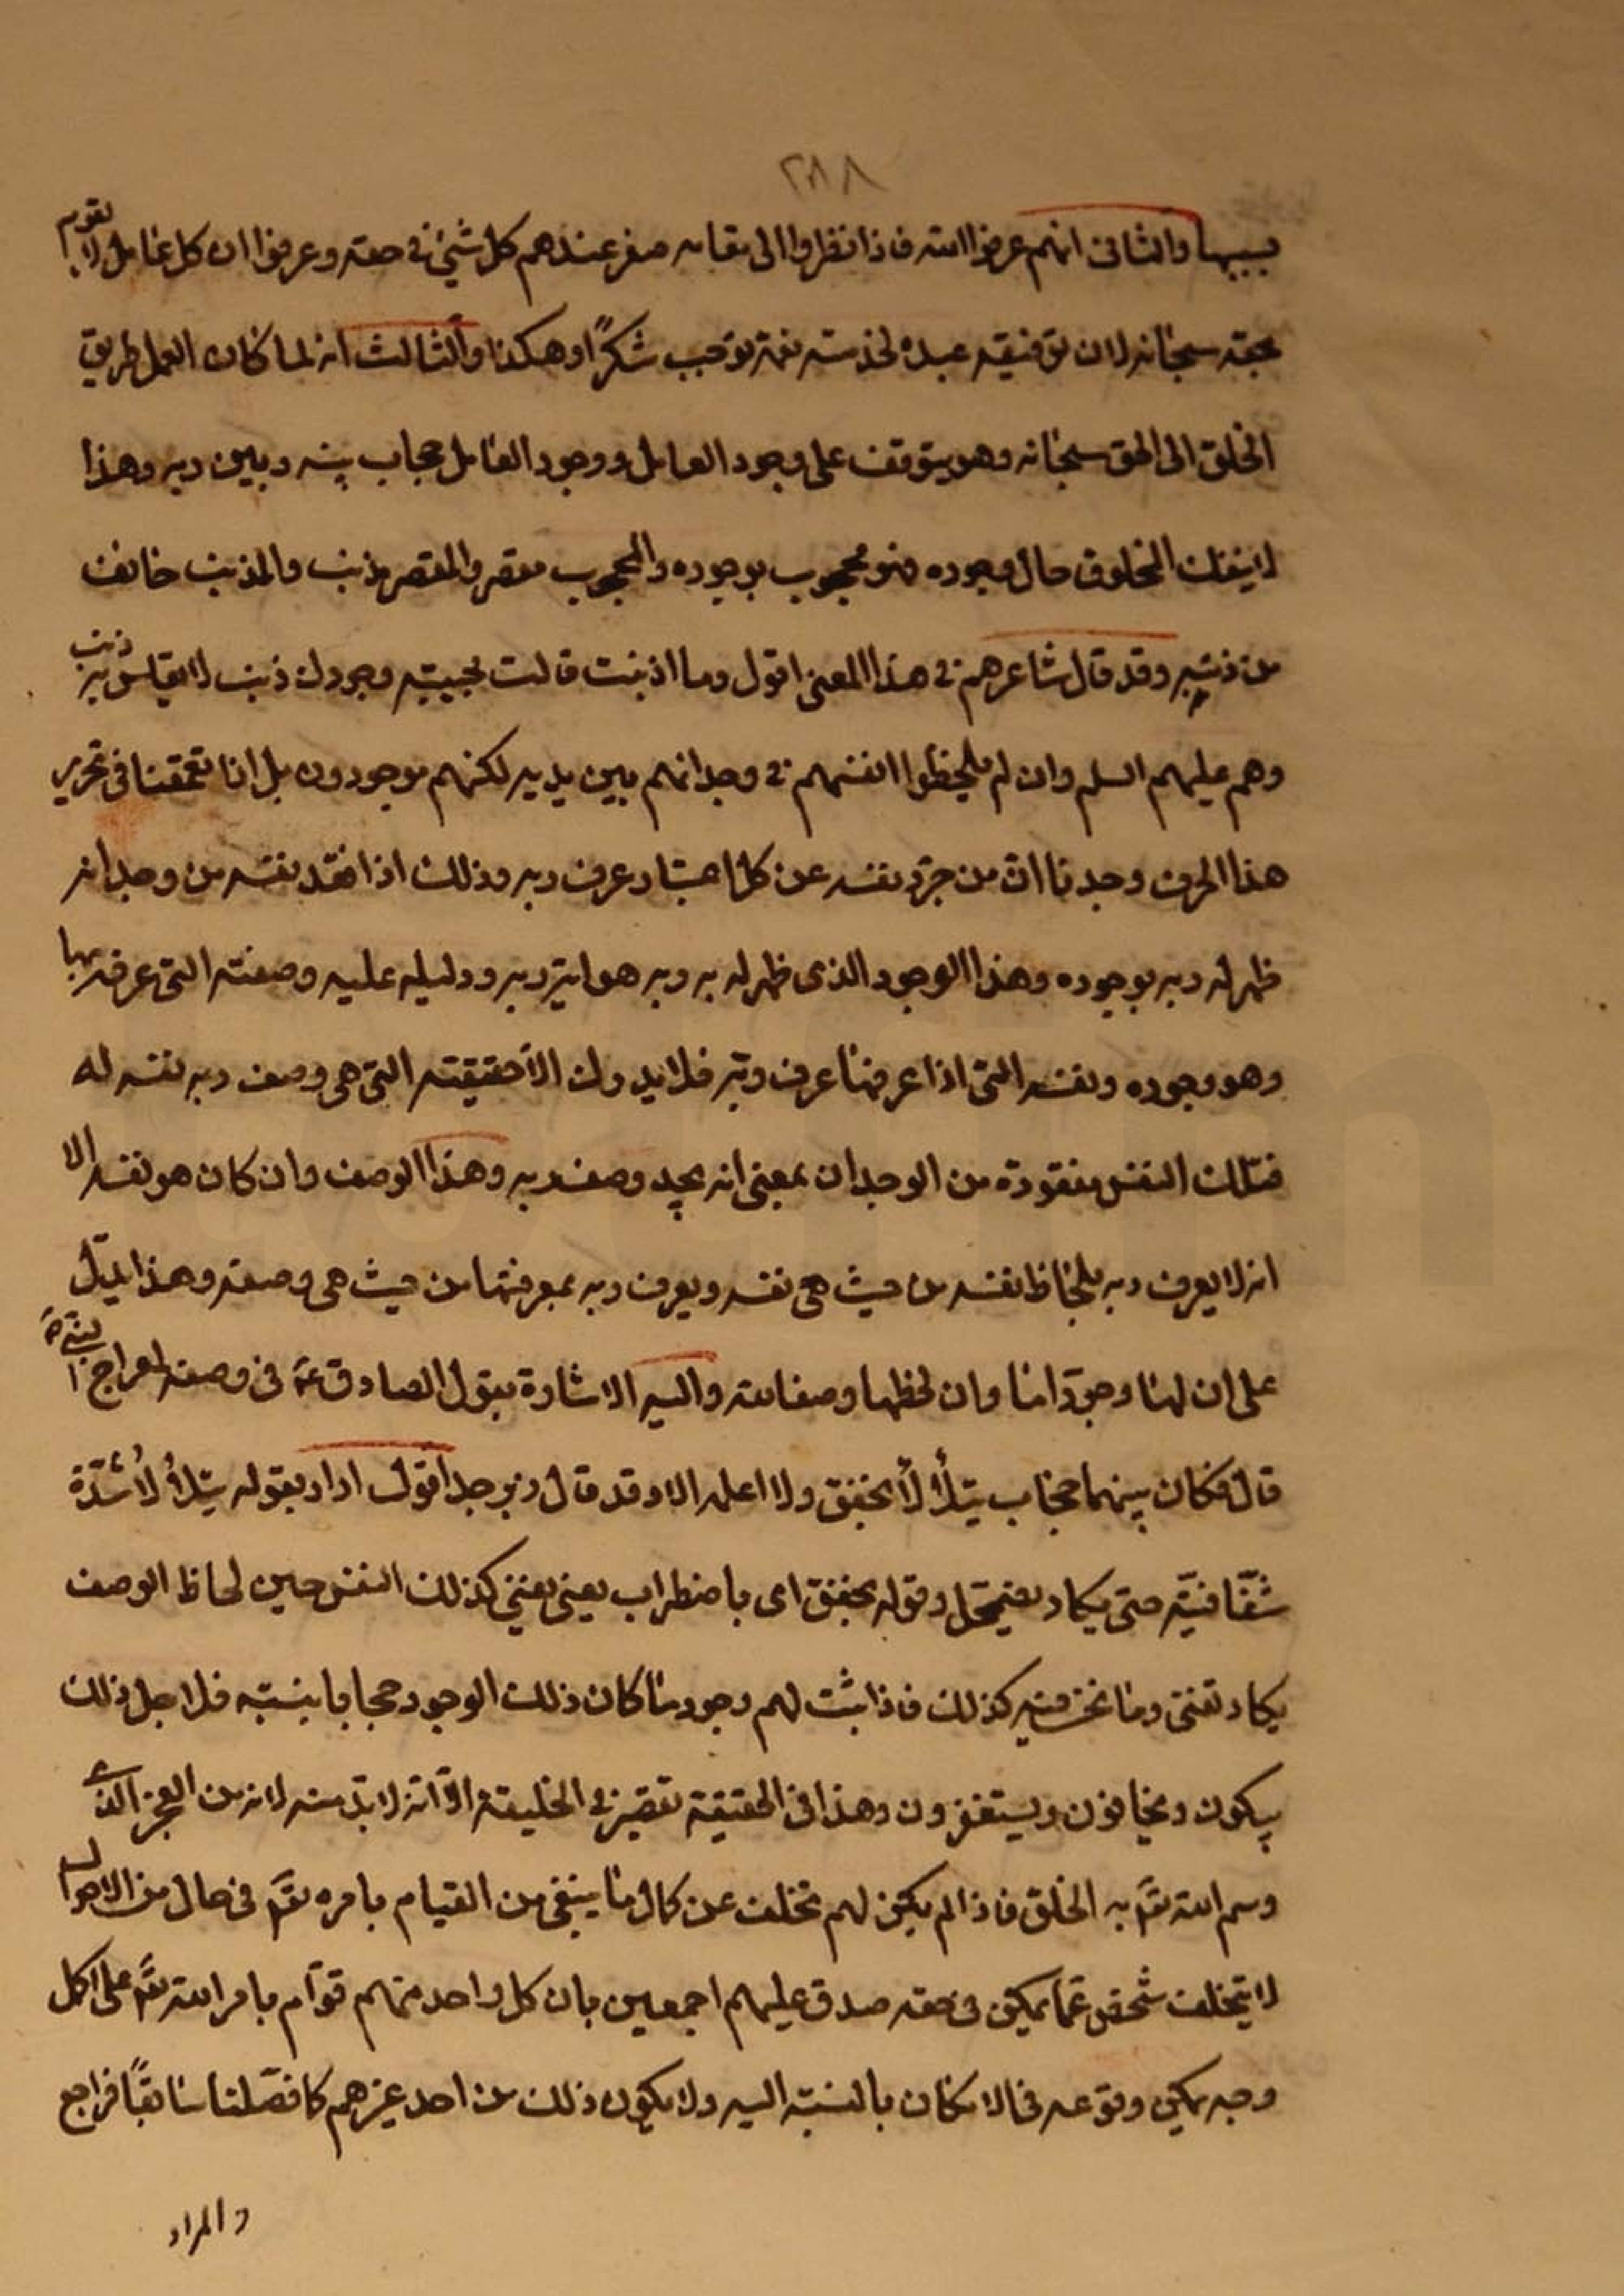 ٢٨٨
بسببها والثانى انهم عرفوا الله فاذا نظروا الى مقامه صغر عندهم كل شىء فى حقه وعرفوا ان كل عامل لا يقوم
بحقه سبحانه لان توفيقه عبده لخدمته نعمة توجب شكرًا وهكذا والثالث انه لما كان العمل طريق
الخلق الى الحق سبحانه وهو يتوقف على وجود العامل ووجود العامل حجاب بينه وبين ربه وهذا
لا ينفك المخلوق حال وجوده فهو محجوب بوجوده والمحجوب مقصر والمقصر مذنب والمذنب خائف
من ذنبه وقد قال شاعرهم فى هذا المعنى اقول وما اذنبت قالت مجيبة وجودك ذنب لا يقاس به ذنب
وهم عليهم السلم وان لم يلحظوا انفسهم فى وجدانهم بين يديه لكنهم موجودون بل انا تعمقنا فى تحرير
هذا الحرف وجدنا ان من جرّد نفسه عن كل اعتبار عرف ربه وذلك اذا فقد نفسه من وجدانه
ظهر له ربه بوجوده وهذا الوجود الذى ظهر له به ربه هو اية ربه ودليله عليه وصفته التى عرفه بها
وهو وجوده ونفسه التى اذا عرفها عرف ربّه فلا يدرك الّا حقيقته التى هى وصف ربه نفسه له
فتلك النفس مفقودة من الوجدان بمعنى انه يجد وصف ربه وهذا الوصف وان كان هو نفسه الا
انه لا يعرف ربه بلحاظ نفسه من حيث هى نفسه ويعرف ربه بمعرفتها من حيث هى وصفه وهذا يدلّ
على ان لها وجودًا ما وان لحظها وصفا لله واليه الاشارة بقول الصادق ع فى وصف المعراج النبى ص
قال فكان بينهما حجاب يتلألأ بخفق ولا اعلمه الا وقد قال زبرجد اقول اراد بقوله يتلألأ شدّة
شفّافيّته حتى يكاد يضمحل وقوله بخفق اى باضطراب يعنى يفنى كذلك النفس حين لحاظ الوصف
يكاد تفنى وما نحن فيه كذلك فاذا ثبت لهم وجود ما كان ذلك الوجود حجابا بنسبته فلاجل ذلك
يبكون ويخافون ويستغفرون وهذا فى الحقيقة تقصير فى الخليقة الّا انه لا بدّ منه لانه من العجز الذى
وسم الله تع به الخلق فاذا لم يكن لهم تخلف عن كمال ما ينبغى من القيام بامره تع فى حال من الاحوال
لا يتخلف شخص عمّا يمكن فى حقه صدق عليهم اجمعين بان كل واحد منهم قوّام بامر الله تع على اكمل
وجه يمكن وقوعه فى الامكان بالنسبة اليه ولا يكون ذلك من احد غيرهم كما فصّلنا سابقًا فراجع
والمراد